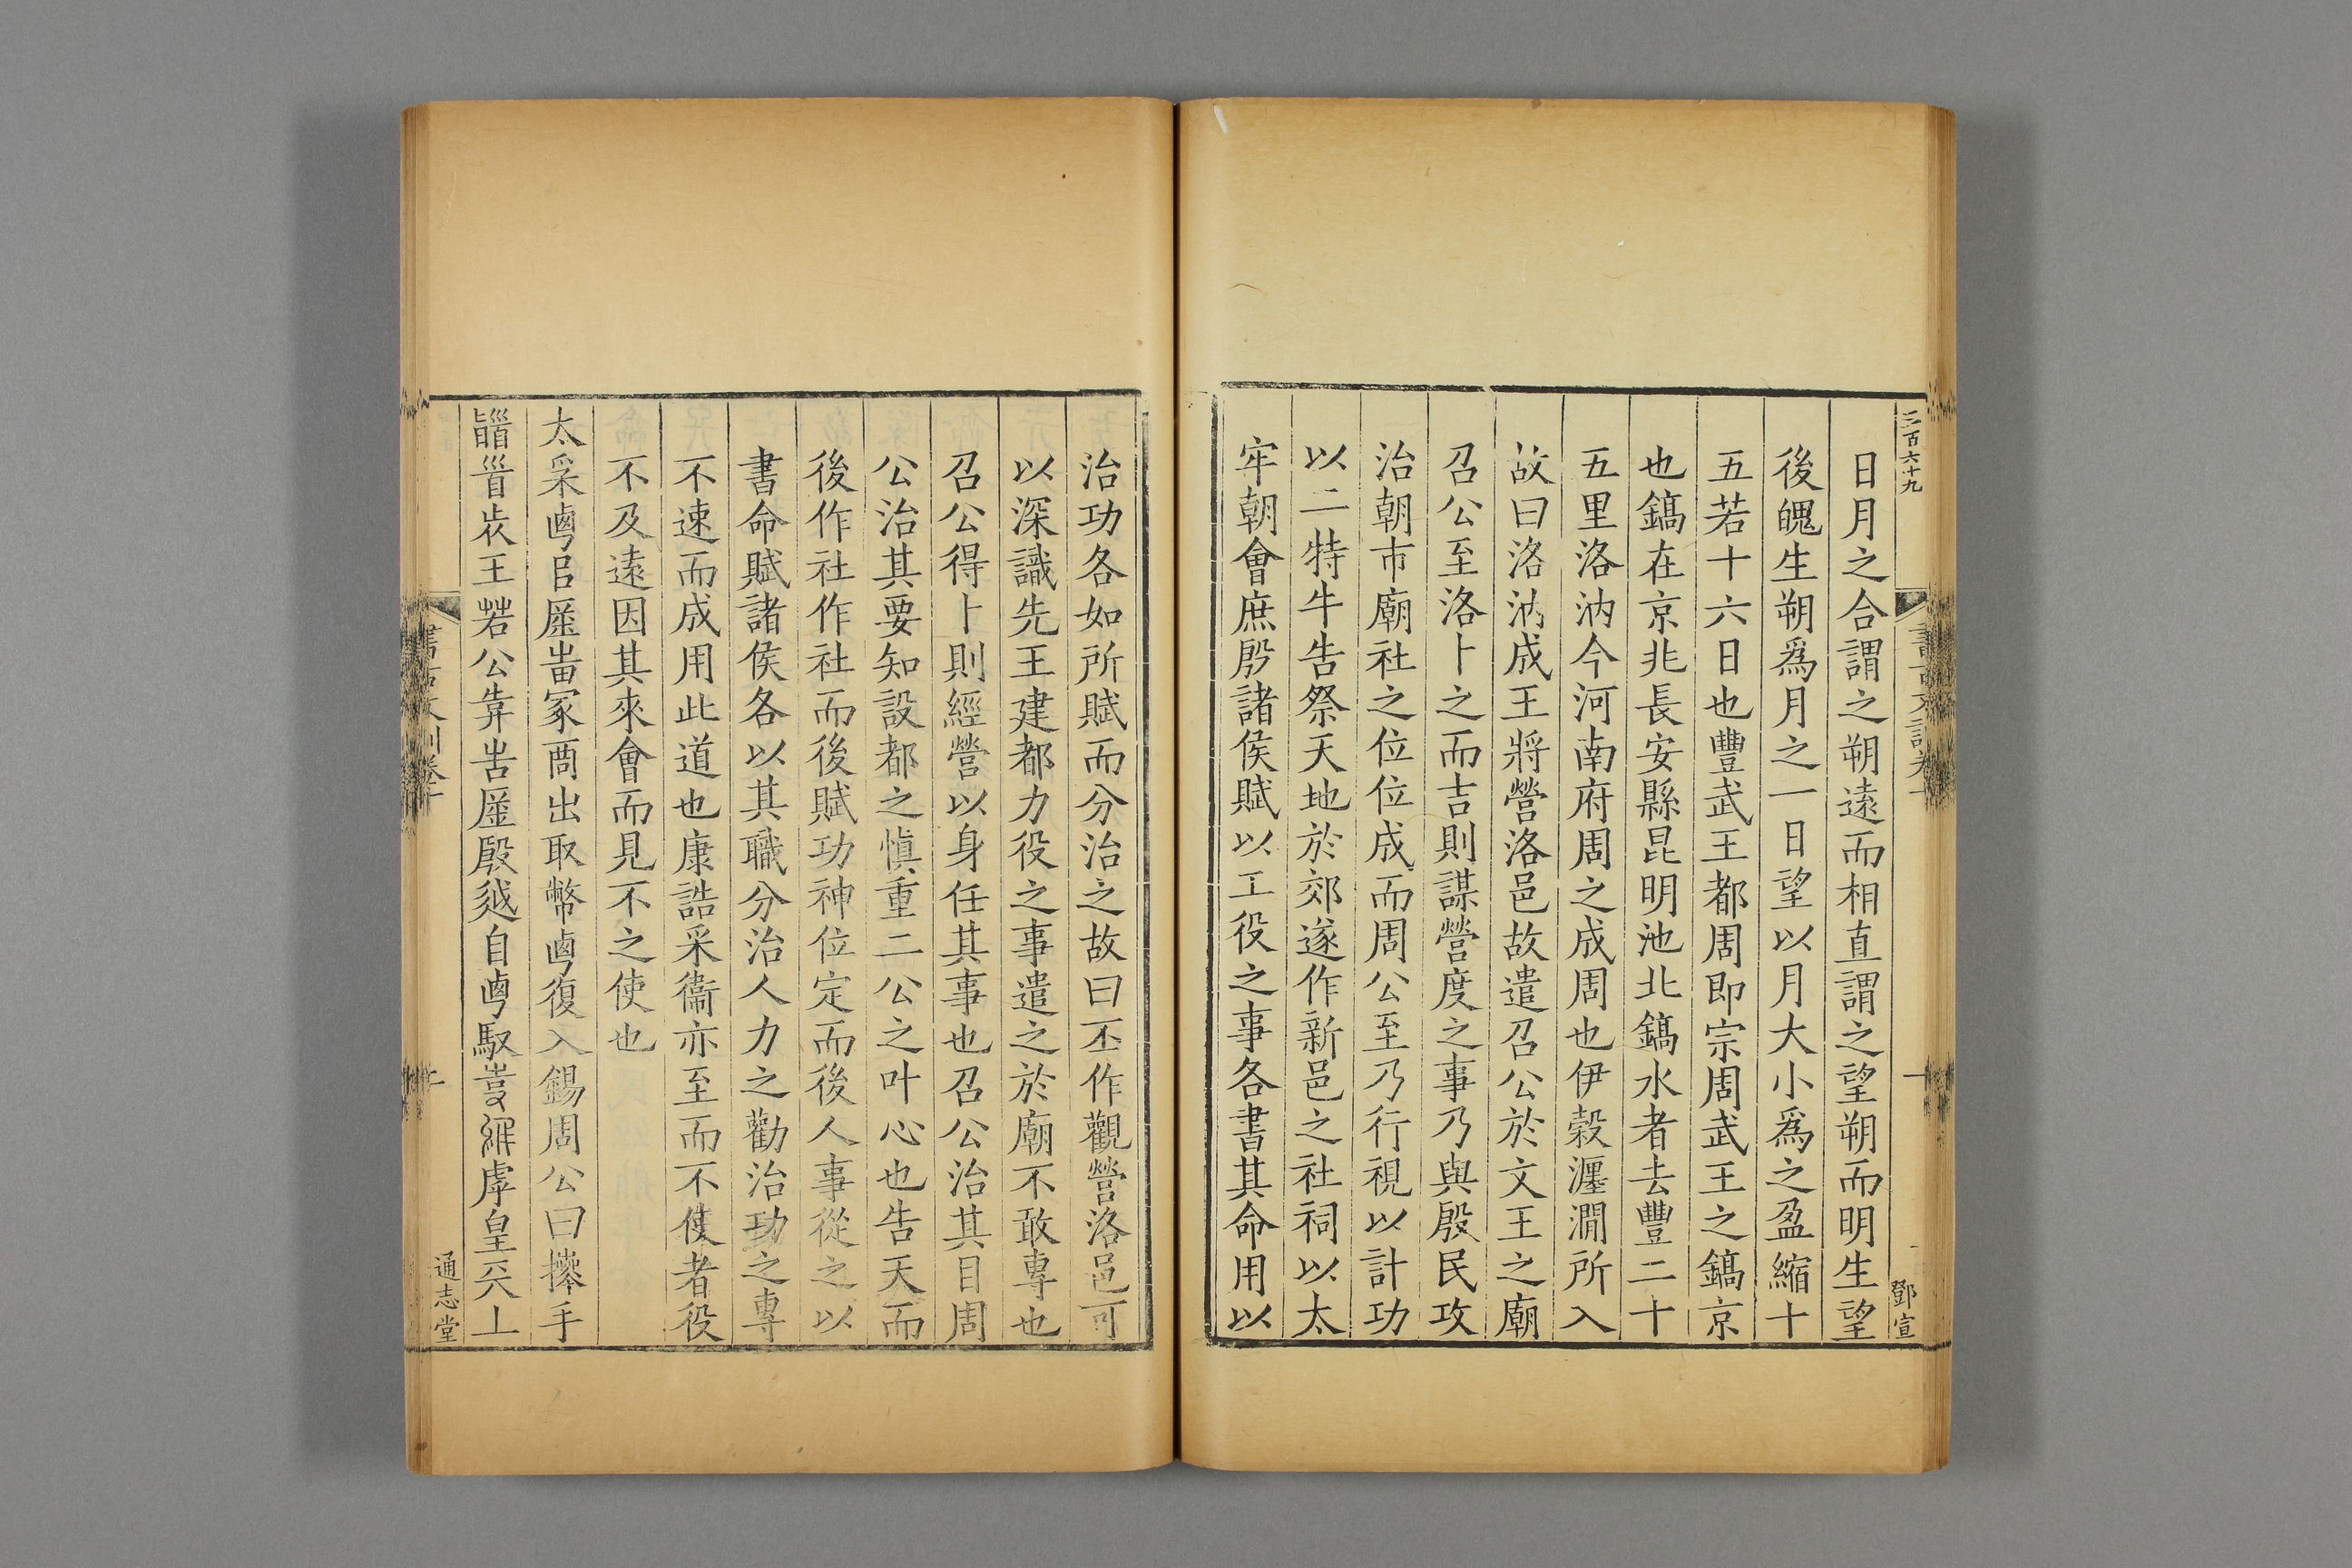 三百六十九
鄧宣
日月之合謂之朔遠而相直謂之望朔而明生望
後魄生朔爲月之一日望以月大小爲之盈縮十
五若十六日也豐武王都周即宗周武王之鎬京
也鎬在京兆長安縣昆明池北鎬水者去豐二十
五里洛汭今河南府周之成周也伊穀瀍澗所入
故曰洛汭成王將營洛邑故遣召公於文王之廟
召公至洛卜之而吉則謀營度之事乃與殷民攻
治朝市廟社之位位成而周公至乃行視以計功
以二特牛告祭天地於郊遂作新邑之社祠以太
牢朝會庶殷諸侯賦以工役之事各書其命用以
治功各如所賦而分治之故曰丕作觀營洛邑可
以深識先王建都力役之事遣之於廟不敢專也
召公得卜則經營以身任其事也召公治其目周
公治其要知設都之慎重二公之叶心也告天而
後作社作社而後賦功神位定而後人事從之以
書命賦諸侯各以其職分治人力之勸治功之專
不速而成用此道也康誥采衞亦至而不使者役
不及遠因其來會而見不之使也
太采𠧟㠯屋𤰝冢啇出取幣𠧟復入錫周公曰𢳎手
𩒨𦣻𡴎王若公𡴞𠴩屋殷𨒋自𠧟馭𠭖𦀚虖皇𠀘丄
通志堂